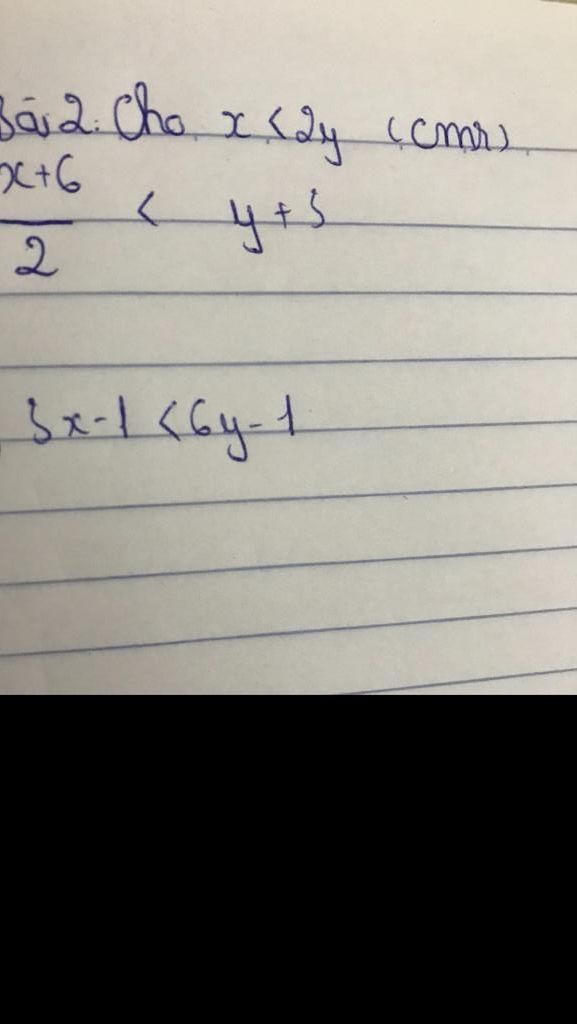 Bài 2: Cho x < 2y (cmr)
x+6
—— < y + 3
2
3x-1 < 6y-1